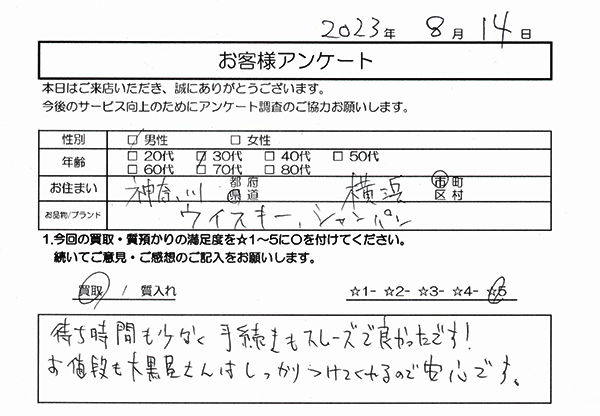 2023年 8月 14日
お客様アンケート
本日はご来店いただき、誠にありがとうございます。
今後のサービス向上のためにアンケート調査のご協力お願いします。
性別 □ 男性 □ 女性
年齢 □ 20代 □ 30代 □ 40代 □ 50代
□ 60代 □ 70代 □ 80代
お住まい 神奈川 都府県道 横浜 市町区村
お品物/ブランド ウィスキー、シャンパン
1.今回の買取・質預かりの満足度を☆1～5に○を付けてください。
続いてご意見・ご感想のご記入をお願いします。
買取 / 質入れ ☆1- ☆2- ☆3- ☆4- ☆5
待ち時間も少なく手続きもスムーズで良かったです!
お値段も大黒屋さんはしっかりつけてくれるので安心です。